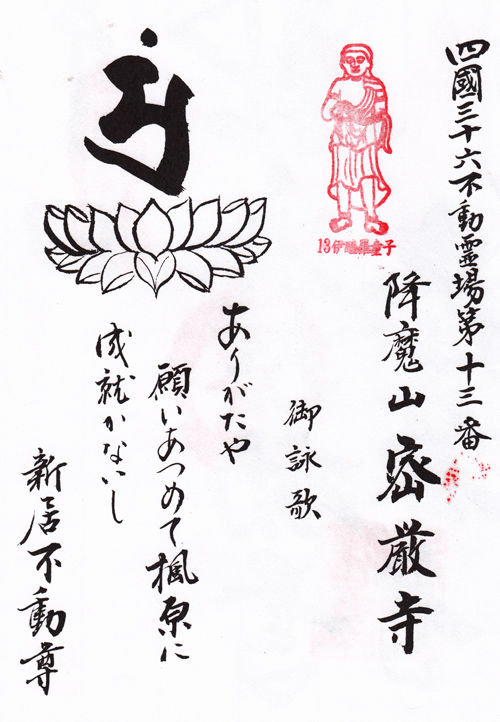 四國三十六不動霊場第十三番
13伊醯羅童子
降魔山密厳寺
御詠歌
ありがたや
願いあつめて楓原に
成就かないし
新居不動尊